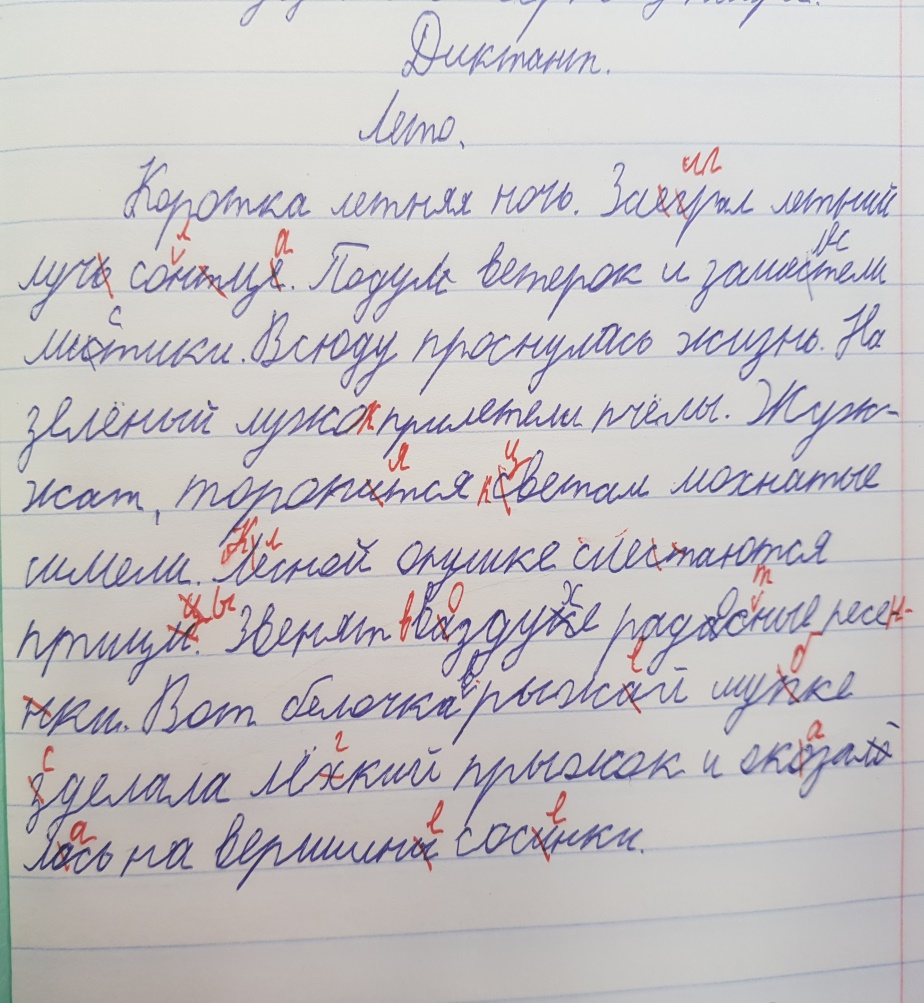 Диктант.
Лето.
Коротка летняя ночь. Заиграл летний
луч солнца. Подул ветерок и зашелестели
листики. Всюду проснулась жизнь. На
зелёный лужок прилетели пчёлы. Жуж-
жат, торопятся к цветам мохнатые
шмели. К лесной опушке слетаются
птицы. Звенят в воздухе радостные песен-
ки. Вот белочка в рыжей шубке
сделала лёгкий прыжок и оказа
лась на вершине сосенки.